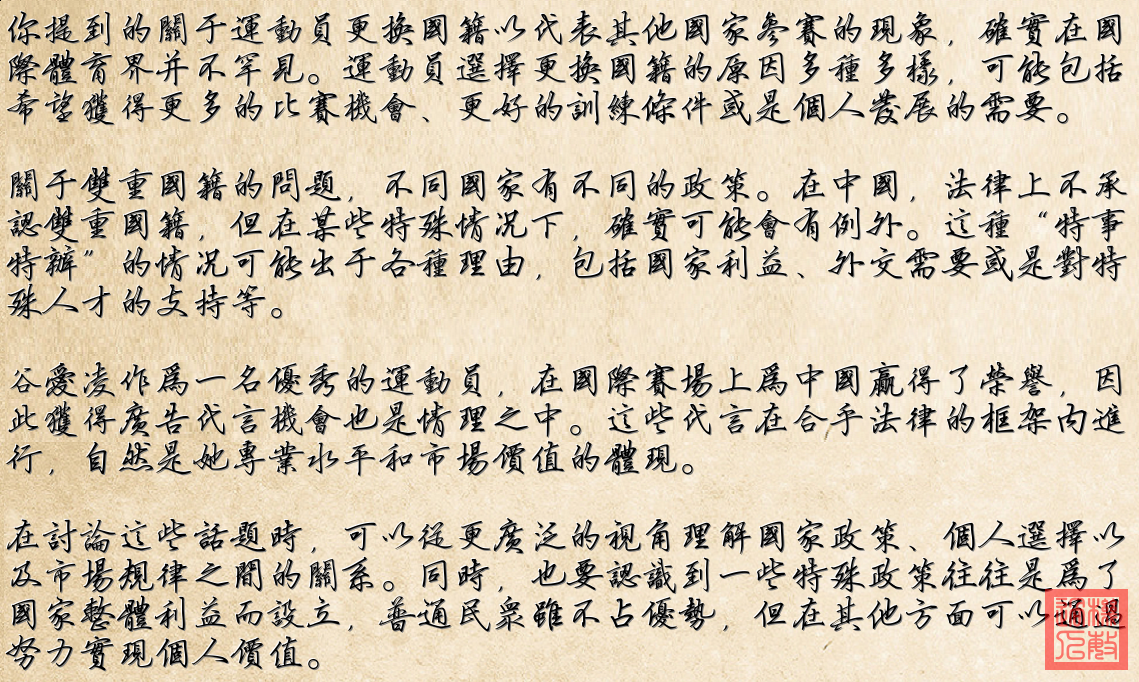 你提到的關于運動員更換國籍以代表其他國家參賽的現象，確實在國
際體育界并不罕見。運動員選擇更換國籍的原因多種多樣，可能包括
希望獲得更多的比賽機會、更好的訓練條件或是個人發展的需要。
關于雙重國籍的問題，不同國家有不同的政策。在中國，法律上不承
認雙重國籍，但在某些特殊情况下，確實可能會有例外。這種“特事
特辦”的情况可能出于各種理由，包括國家利益、外交需要或是對特
殊人才的支持等。
谷愛凌作爲一名優秀的運動員，在國際賽場上爲中國贏得了榮譽，因
此獲得廣告代言機會也是情理之中。這些代言在合乎法律的框架內進
行，自然是她專業水平和市場價值的體現。
在討論這些話題時，可以從更廣泛的視角理解國家政策、個人選擇以
及市場規律之間的關系。同時，也要認識到一些特殊政策往往是爲了
國家整體利益而設立，普通民衆雖不占優勢，但在其他方面可以通過
努力實現個人價值。